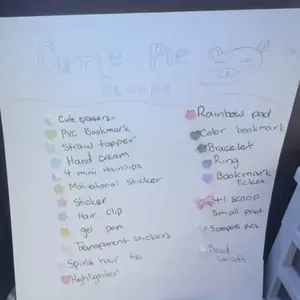 Cutie Pie
Scoops
Cute erasers
PVC Bookmark
Straw topper
Hand cream
4 mini Hairclips
Motivational sticker
Sticker
Hair clip
gel pen
Transparent stickers
Spiral hair tie
Highlighter
Rainbow pad
Color bookmark
Bracelet
Ring
Bookmark
Ticket
+1 scoop
Small
Scoopers pick
Bead